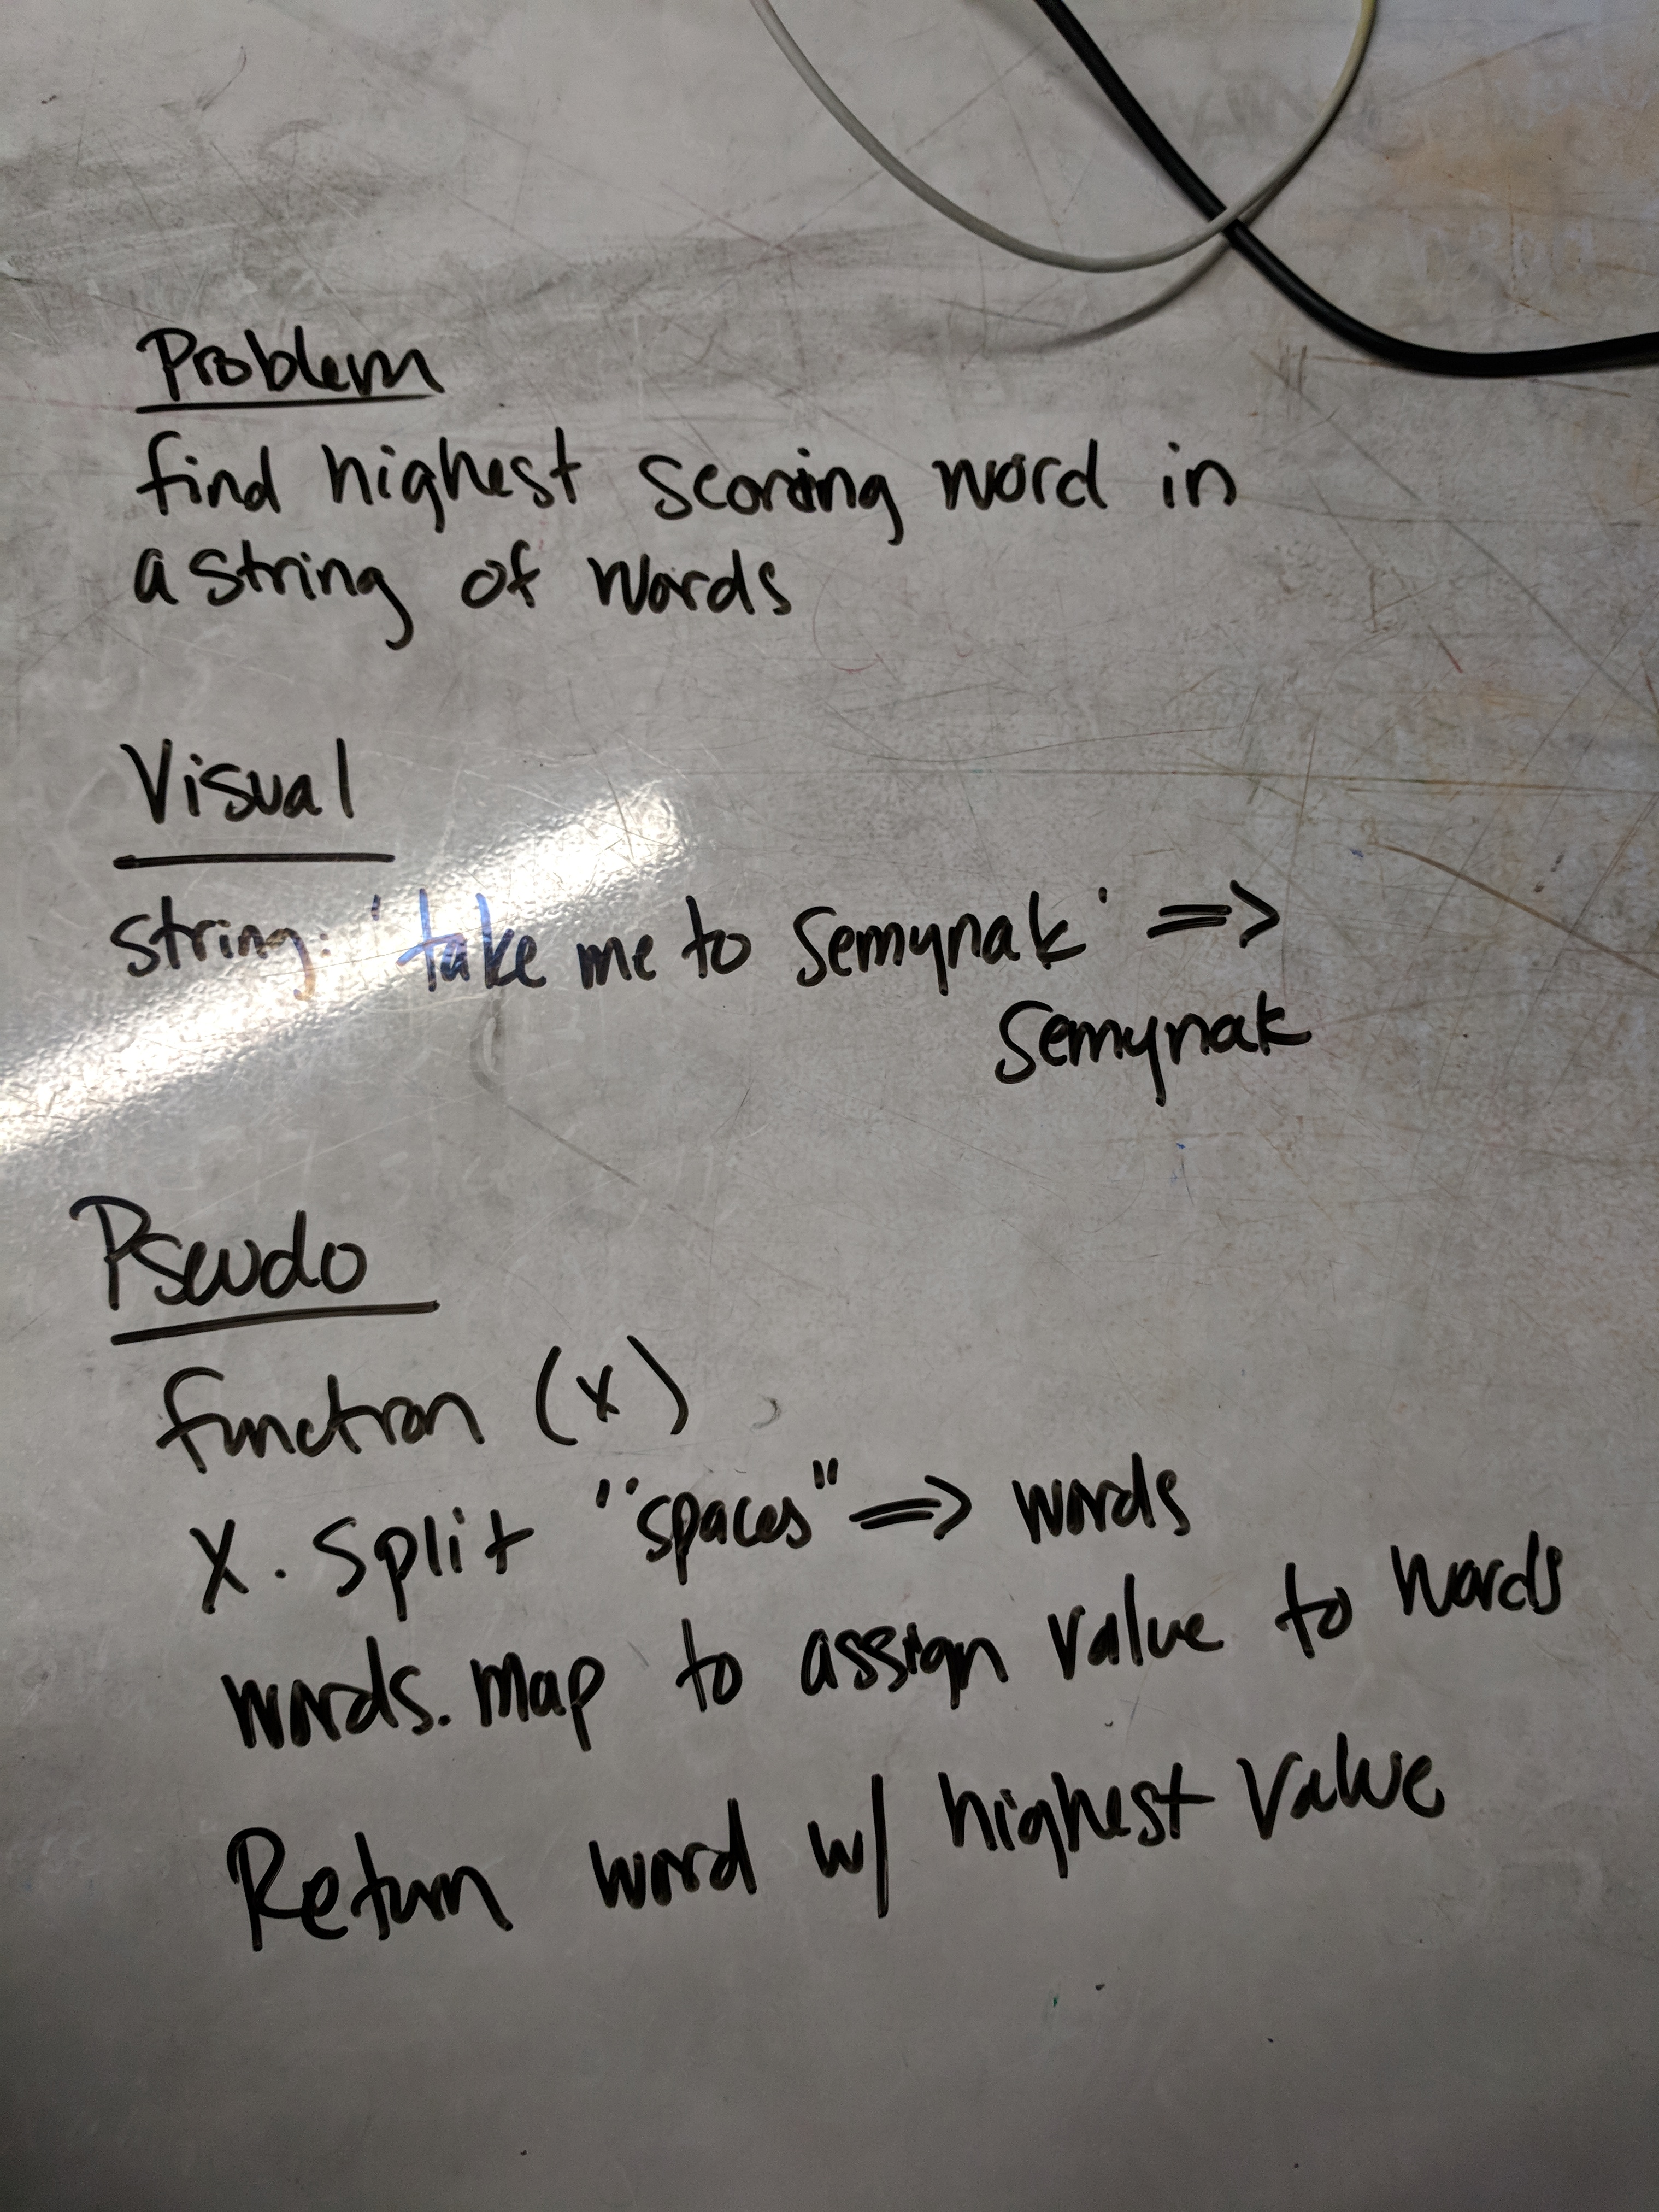 Problem
find highest scoring word in
a string of words
Visual
string: 'take me to semynak' =>
semynak
Pseudo
function (x)
X. split "spaces" => words
words. map to assign value to words
Return word w/ highest value